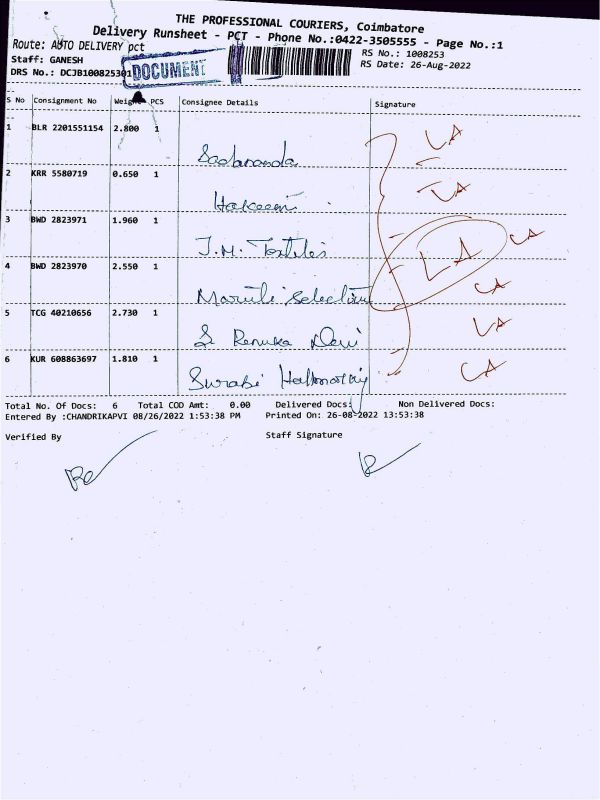 THE PROFESSIONAL COURIERS, Coimbatore
Delivery Runsheet - PCT - Phone No.:0422-3505555 - Page No.:1
Route: AUTO DELIVERY pct
RS No.: 1008253
Staff: GANESH
RS Date: 26-Aug-2022
DRS No.: DCJB100825301
DOCUMENT
S No Consignment No Weight PCS Consignee Details Signature
1 BLR 2201551154 2.800 1
LA
2 KRR 5580719 0.650 1
Hakeem
LA
3 BWD 2823971 1.960 1
J.M. Textiles
LA LA
4 BWD 2823970 2.550 1
Maruti Selection
LA
5 TCG 40210656 2.730 1
S Renuka Devi
LA
6 KUR 608863697 1.810 1
Surabi
LA
Total No. Of Docs: 6 Total COD Amt: 0.00 Delivered Docs: Non Delivered Docs:
Entered By :CHANDRIKAPVI 08/26/2022 1:53:38 PM Printed On: 26-08-2022 13:53:38
Verified By Staff Signature